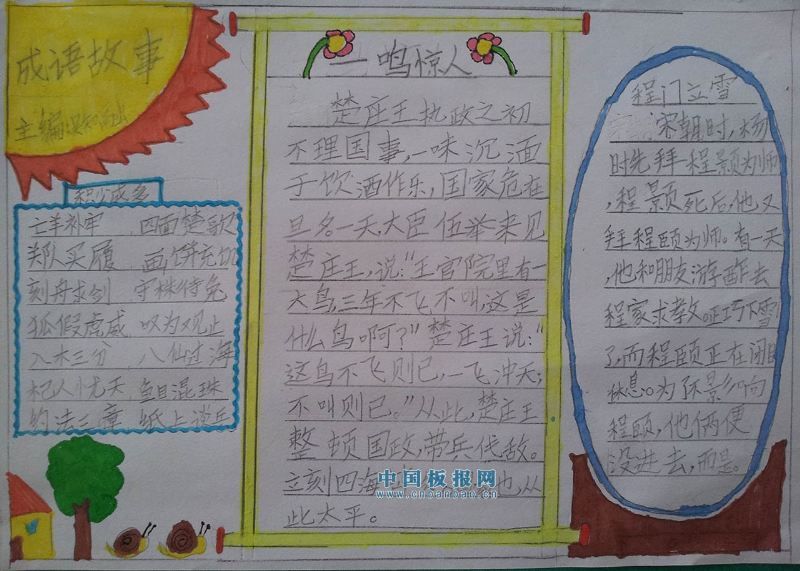 成语故事
主编
积少成多
亡羊补牢 四面楚歌
郑人买履 画饼充饥
刻舟求剑 守株待兔
狐假虎威 叹为观止
入木三分 八仙过海
杞人忧天 鱼目混珠
约法三章 纸上谈兵
一鸣惊人
楚庄王执政之初
不理国事,一味沉湎
于饮酒作乐,国家危在
旦夕。一天,大臣伍举来见
楚庄王,说:"王宫院里有一
大鸟,三年不飞,不叫,这是
什么鸟啊?"楚庄王说:"
这鸟不飞则已,一飞冲天;
不叫则已。"从此,楚庄王
整顿国政,带兵伐敌。
立刻四海 也,从
此太平。
程门立雪
宋朝时,杨
时先拜程颢为师
,程颢死后,他又
拜程颐为师。有一天
,他和朋友游酢去
程家求教,正巧下雪
了,而程颐正在闭目
休息。为了不影响
程颐,他俩便
没进去,而是。
中国板报网
www.cnbanbao.cn